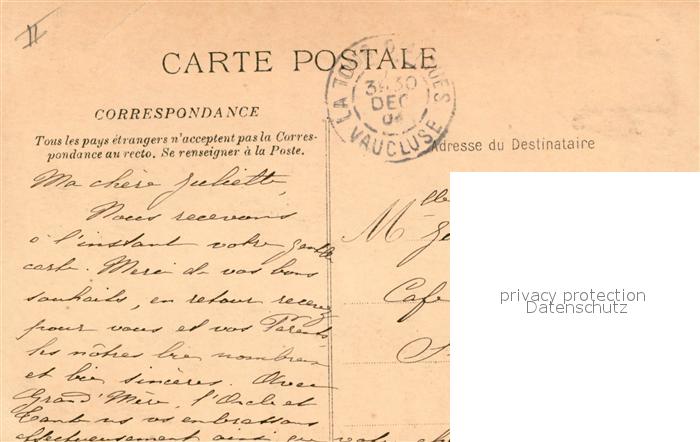 CARTE POSTALE
LA TOUR D'AIGUES
3H30
DEC
04
VAUCLUSE
CORRESPONDANCE
Tous les pays étrangers n'acceptent pas la Corres-
pondance au recto. Se renseigner à la Poste.
Adresse du Destinataire
Ma chère Juliette,
Nous recevons
à l'instant votre gentille
carte. Merci de vos bons
souhaits, en retour recevez
pour vous et vos Parents
les nôtres bien nombreux
et bien sincères. Avec
Grand'Mère, l'Oncle et
Tante ns vs embrassons
affectueusement ainsi que
Mlle
Cafe
privacy protection
Datenschutz